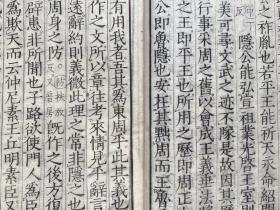 之祚胤也若平王能祈天永命紹開
隱公能弘宣祖業光啓王室
美可尋文武之迹不隊是故因其
行事采周之舊以會成王義垂法
之王即平王也所用之歷即周正
公即魯隱也安在其黜周而王
有用我者吾其為東周乎此其義也
作之文所以章往考來情見乎辭言
遠辭約則義微此理之常非隱之也
周身之防既作之後方復
辟患非所聞也子路欲使門人為臣
為欺天而云仲尼素王丘明素臣又